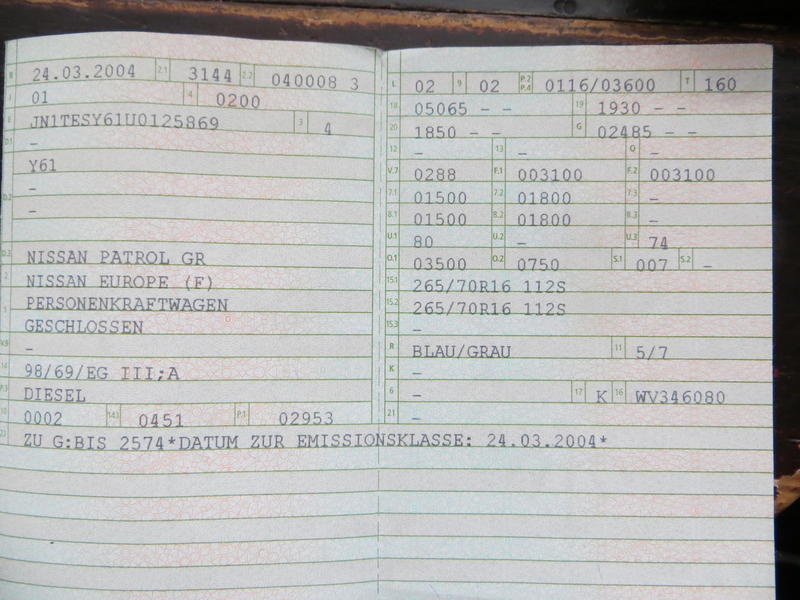 B 24.03.2004 2.1 3144 2.2 040008 3
J 01 4 0200
E JN1TESY61U0125869 3 4
D.1 –
Y61
D.2 –
–
D.3 NISSAN PATROL GR
2 NISSAN EUROPE (F)
5 PERSONENKRAFTWAGEN
GESCHLOSSEN
V.9 –
14 98/69/EG III;A
P.3 DIESEL
10 0002 14.1 0451 P.1 02953
L 02 9 02 P.2 P.4 0116/03600 T 160
18 05065 – – 19 1930 – –
20 1850 – – G 02485 – –
12 – 13 – Q –
V.7 0288 F.1 003100 F.2 003100
7.1 01500 7.2 01800 7.3 –
8.1 01500 8.2 01800 8.3 –
U.1 80 U.2 – U.3 74
O.1 03500 O.2 0750 S.1 007 S.2 –
15.1 265/70R16 112S
15.2 265/70R16 112S
15.3 –
R BLAU/GRAU 11 5/7
K –
6 – 17 K 16 WV346080
21 –
22 ZU G:BIS 2574*DATUM ZUR EMISSIONSKLASSE: 24.03.2004*